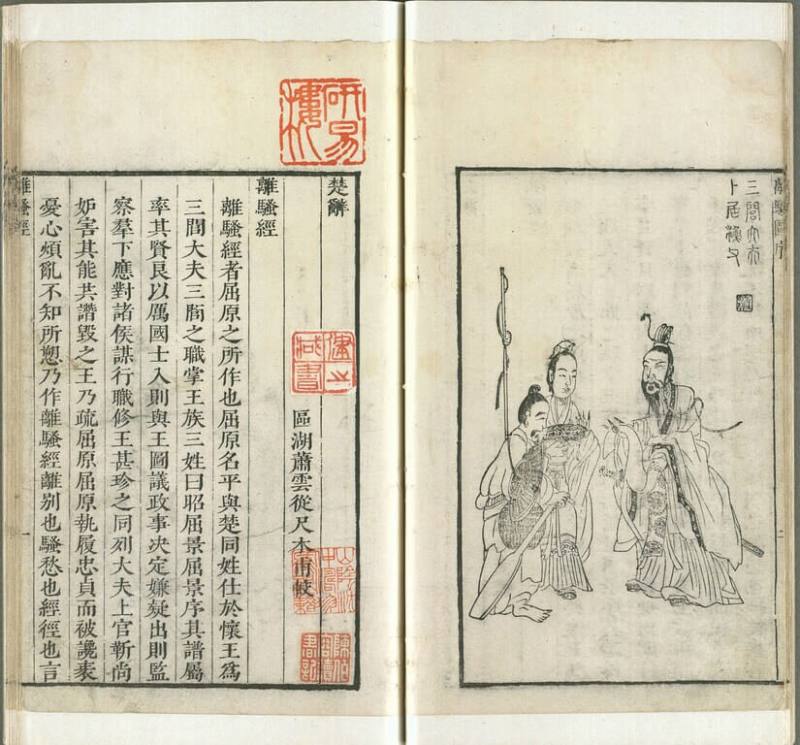 離騷圖序
三閭大夫
卜居漁父
研易樓
楚辭
區湖蕭雲從尺木甫較
離騷經
離騷經者屈原之所作也屈原名平與楚同姓仕於懷王爲
三閭大夫三閭之職掌王族三姓曰昭屈景屈景序其譜屬
率其賢良以厲國士入則與王圖議政事决定嫌疑出則監
察羣下應對諸侯謀行職修王甚珍之同列大夫上官靳尚
妒害其能共譖毀之王乃疏屈原屈原執履忠貞而被讒衺
憂心煩亂不知所愬乃作離騷經離别也騷愁也經徑也言
離騷經 一